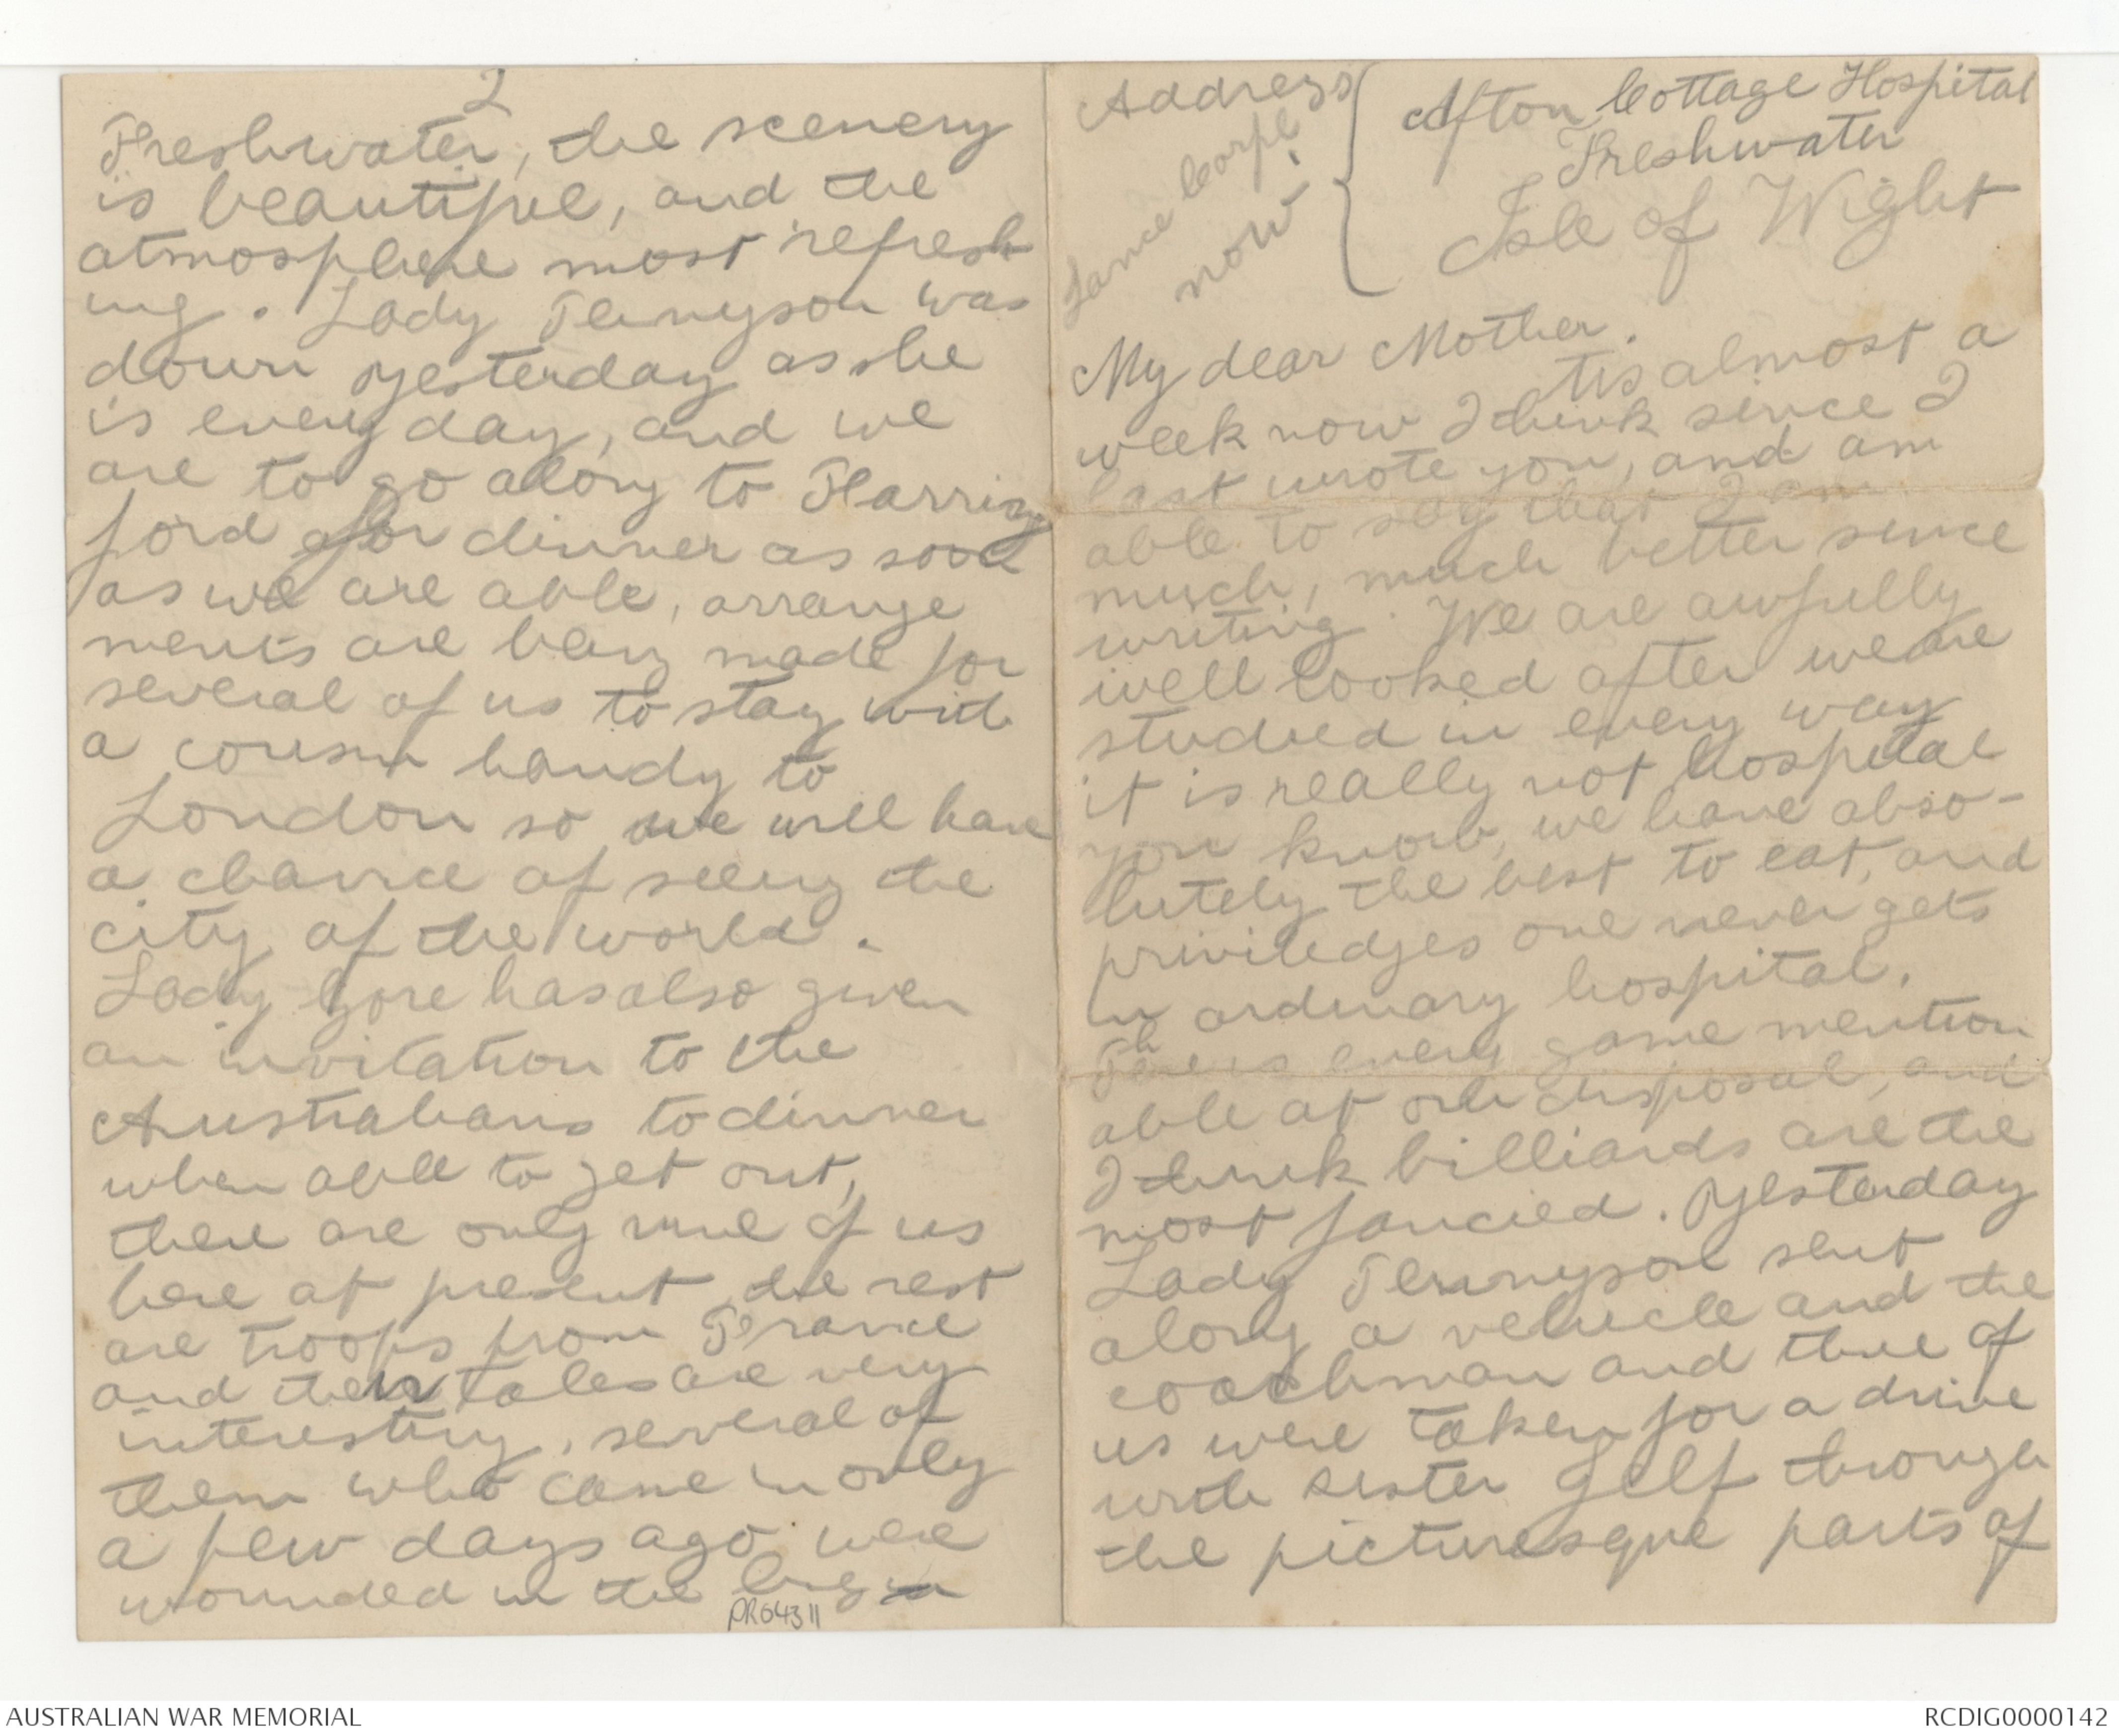 Address
Afton Cottage Hospital
Freshwater
Isle of Wight
Lance Corpl
now
My dear Mother.
Tis almost a
week now I think since I
last wrote you, and am
able to say that I am
much, much better since
writing. We are awfully
well looked after we are
studied in every way
it is really not hospital
you know, we have abso-
lutely the best to eat, and
priviledges one never gets
in ordinary hospital.
There is every game mention
able at our disposal, and
I think billiards are the
most fancied. Yesterday
Lady Tennyson sent
along a vehicle and the
coachman and three of
us were taken for a drive
with sister Gelf through
the picturesque parts of
2
Freshwater, the scenery
is beautiful, and the
atmosphere most refresh
ing. Lady Tennyson was
down yesterday as she
is every day, and we
are to go along to Farring
ford for dinner as soon
as we are able, arrange
ments are being made for
several of us to stay with
a cousin handy to
London so we will have
a chance of seeing the
city of the world.
Lady Gore has also given
an invitation to the
Australians to dinner
when able to get out,
there are only nine of us
here at present the rest
are troops from France
and their tales are very
interesting, several of
them who came in only
a few days ago were
wounded in the big
PR04311
AUSTRALIAN WAR MEMORIAL
RCDIG0000142